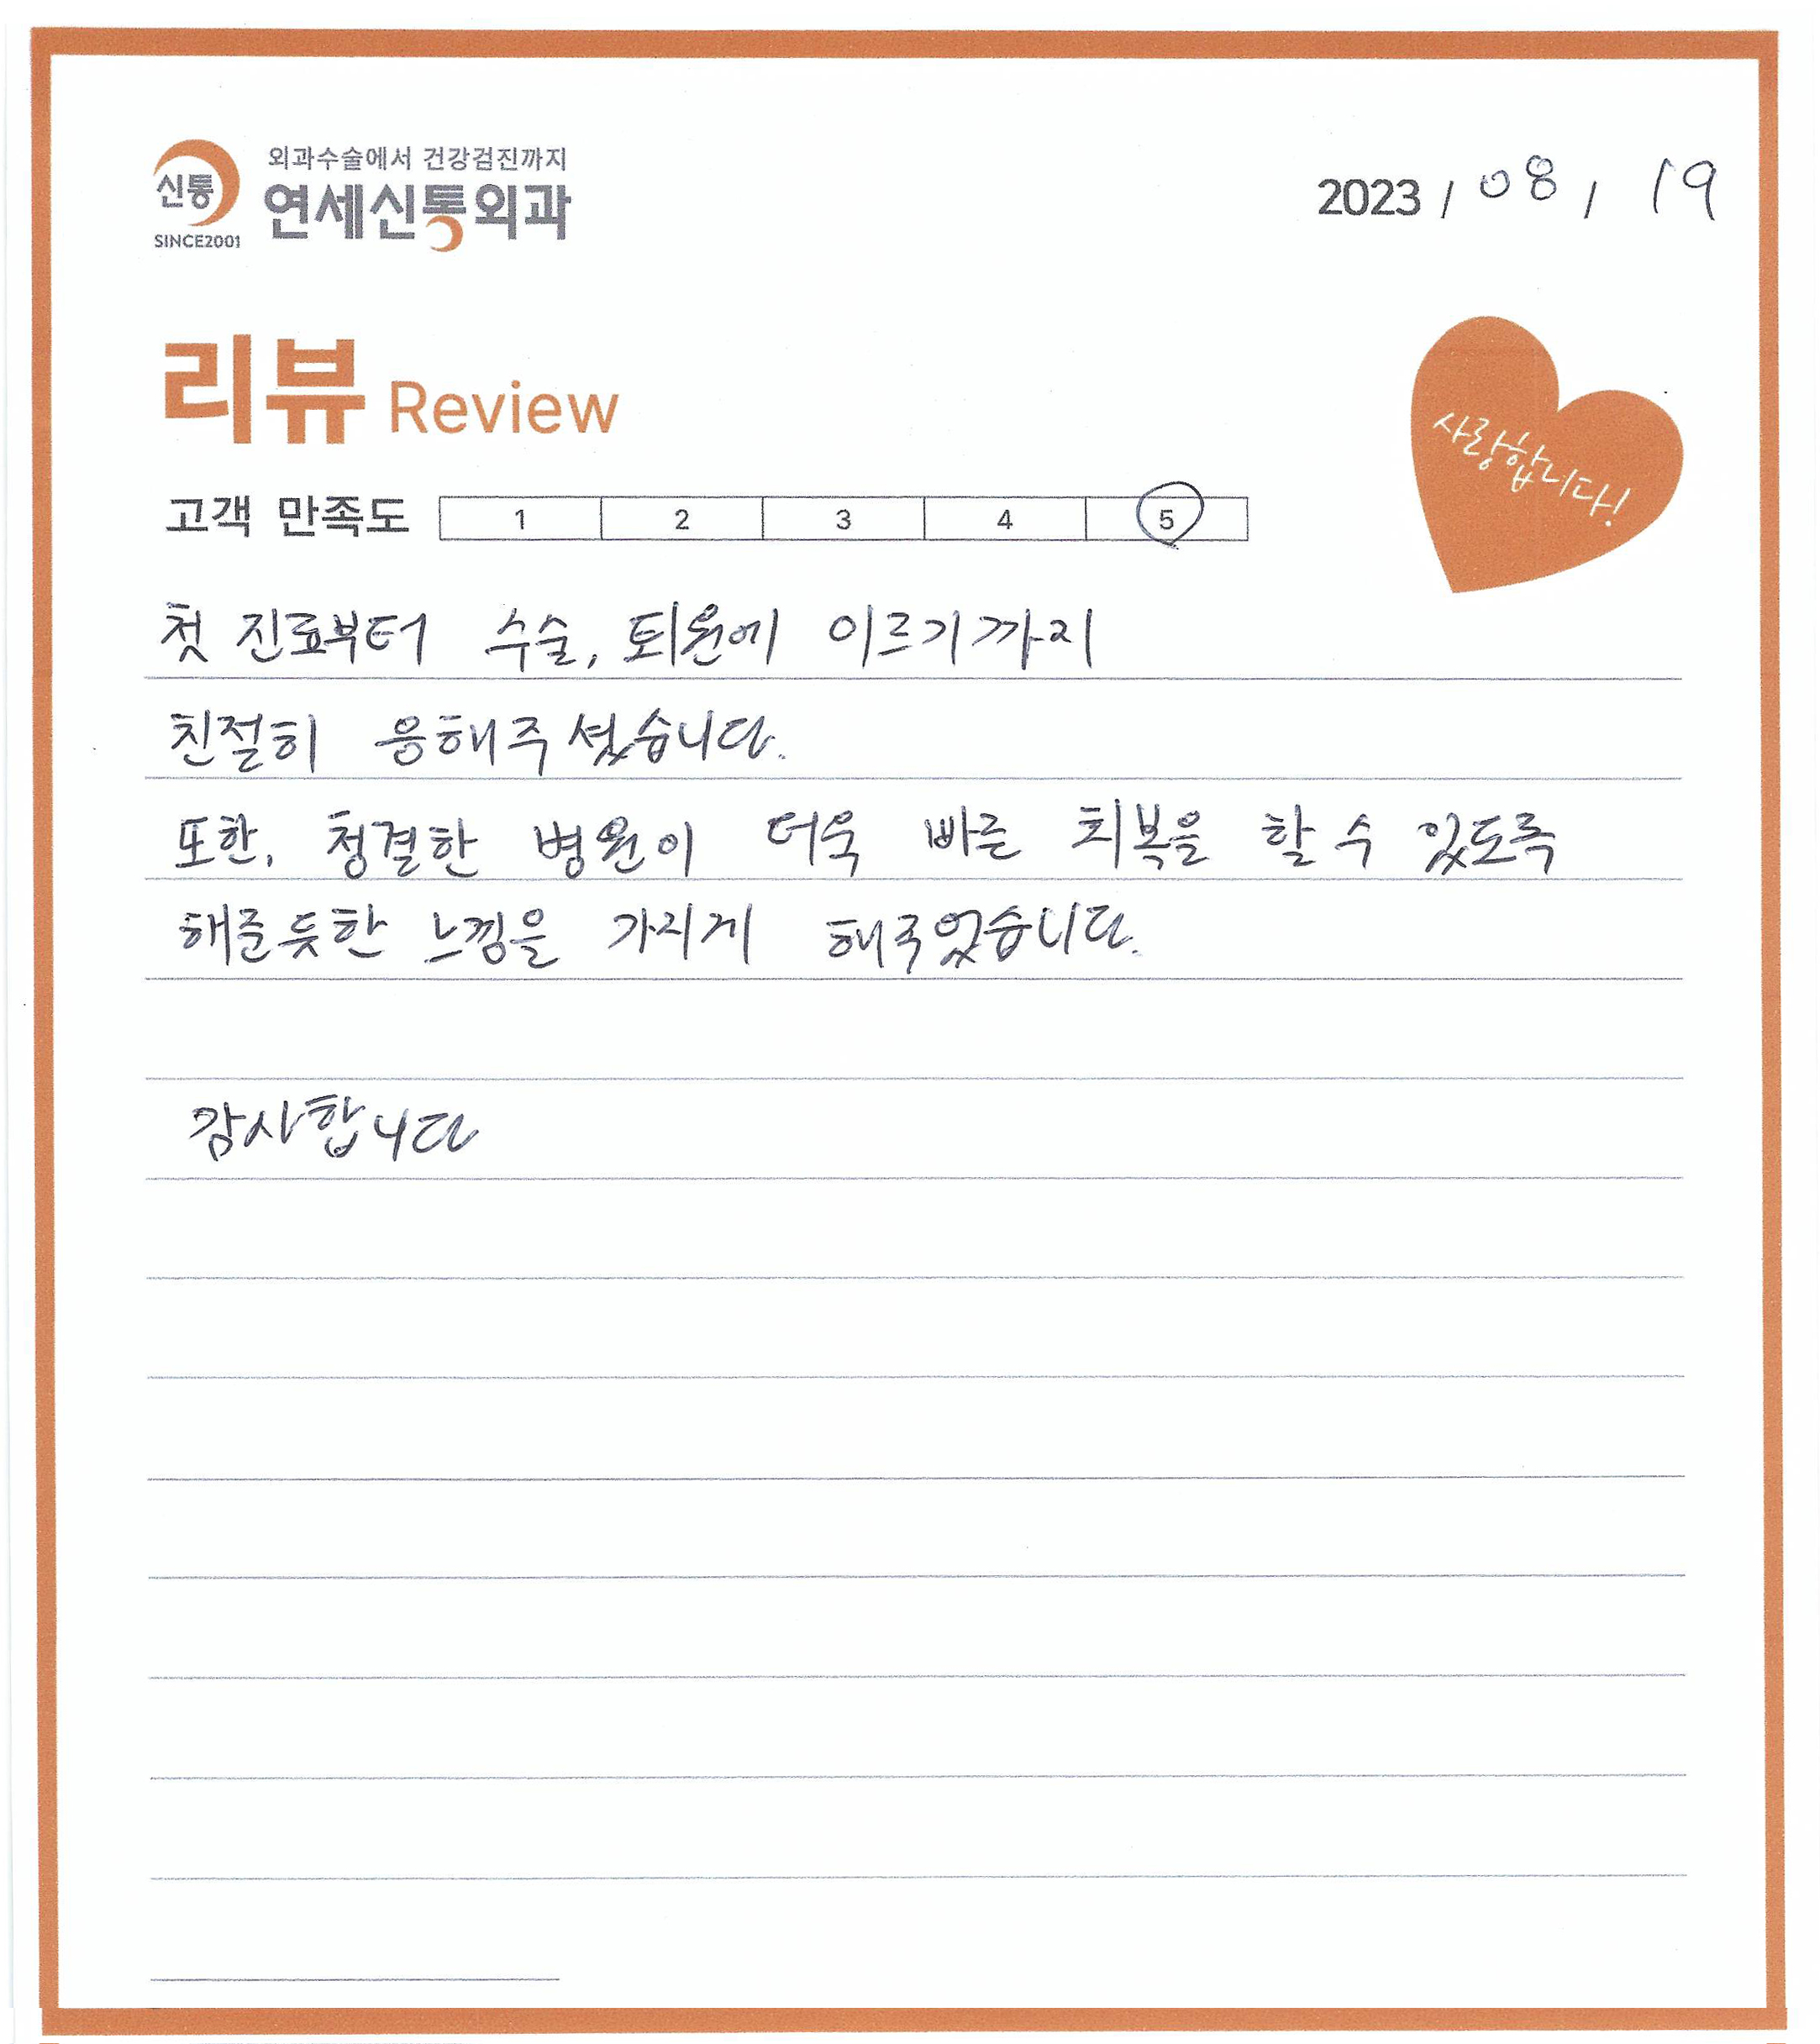 신통
SINCE2001
외과수술에서 건강검진까지
연세신통외과
2023 / 08 / 19
리뷰 Review
사랑합니다!
고객 만족도 1 2 3 4 5
첫 진료부터 수술, 퇴원에 이르기까지
친절히 응해주셨습니다.
또한, 청결한 병원이 더욱 빠른 회복을 할 수 있도록
해준듯한 느낌을 가지게 해주었습니다.
감사합니다